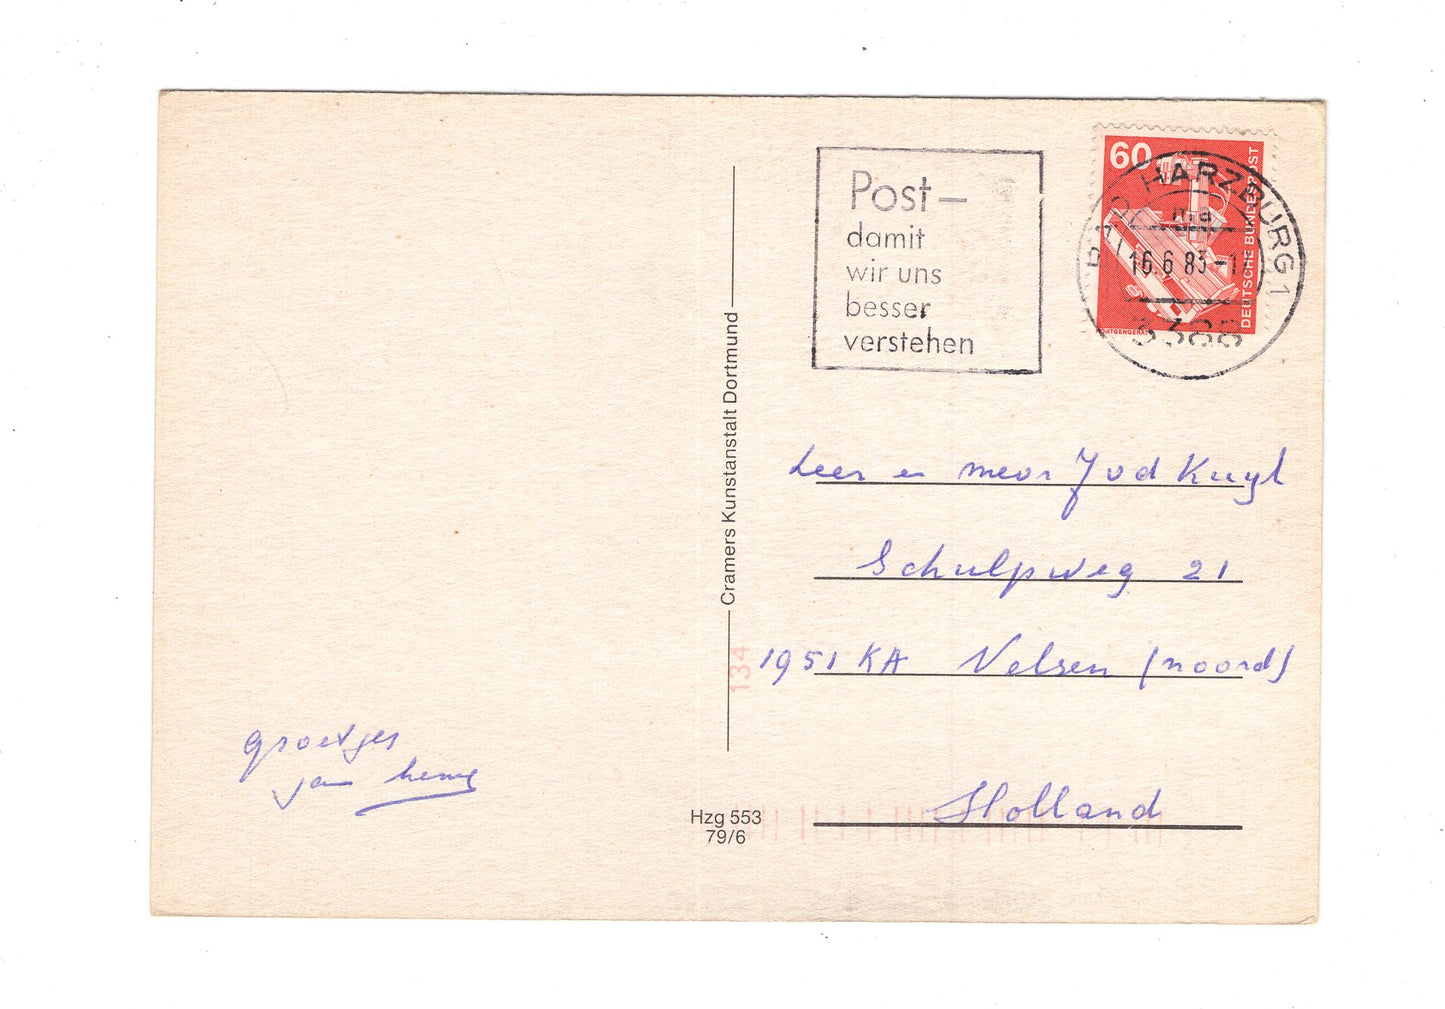 Post –
damit
wir uns
besser
verstehen
60
DEUTSCHE BUNDESPOST
BAD HARZBURG 1
ma
16.6.83-1
3388
Cramers Kunstanstalt Dortmund
134
Leer en mevr J vd Kuyl
Schulpweg 21
1951 KA Velsen (noord)
Holland
groetjes
jan
Hzg 553
79/6